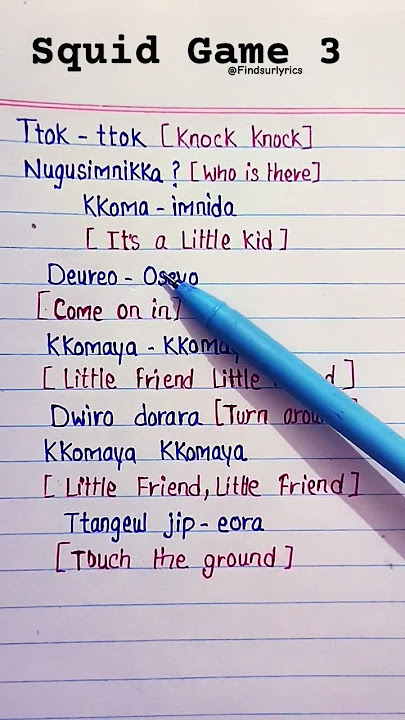 Squid Game 3
@Findsurlyrics
Ttok - ttok [Knock Knock]
Nugusimnikka? [Who is there]
KKoma - imnida
[It's a Little Kid]
Deureo - Oseyo
[Come on in]
KKomaya -
[Little Friend Little
Dwiro dorara [Turn
KKomaya KKomaya
[Little Friend, Little Friend]
Ttangeul jip - eora
[Touch the ground]